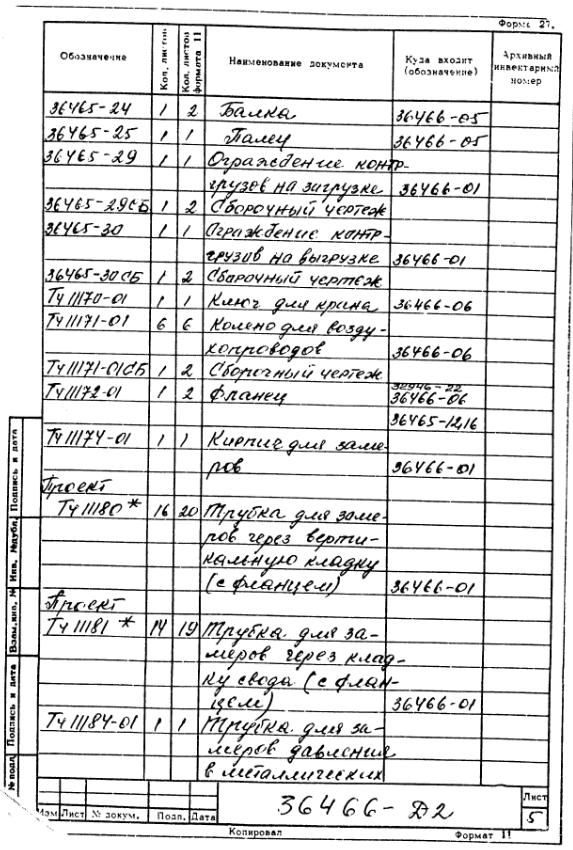 Форма 27.
Обозначение Кол. листов Кол. листов формата 11 Наименование документа Куда входит (обозначение) Архивный инвентарный номер
36465-24 1 2 Балка 36466-05
36465-25 1 1 Палец 36466-05
36465-29 1 1 Ограждение контр-
грузов на загрузке 36466-01
36465-29СБ 1 2 Сборочный чертеж
36465-30 1 1 Ограждение контр-
грузов на выгрузке 36466-01
36465-30СБ 1 2 Сборочный чертеж
Тч11170-01 1 1 Ключ для крана 36466-06
Тч11171-01 6 6 Колено для возду-
хопроводов 36466-06
Тч11171-01СБ 1 2 Сборочный чертеж
Тч11172-01 1 2 Фланец 36466-06
36465-1216
Тч11174-01 1 1 Кирпич для заме-
ров 36466-01
Проект
Тч11180* 16 20 Трубка для заме-
ров через верти-
кальную кладку
(с фланцем) 36466-01
Проект
Тч11181* 14 19 Трубка для за-
меров через клад-
ку свода (с флан-
цем) 36466-01
Тч11184-01 1 1 Трубка для за-
меров давления
в металлических
№ подл. Подпись и дата Взам. инв. № Инв. №дубл. Подпись и дата
36466-Д2
Лист
5
Изм Лист № докум. Подп. Дата
Копировал Формат 11